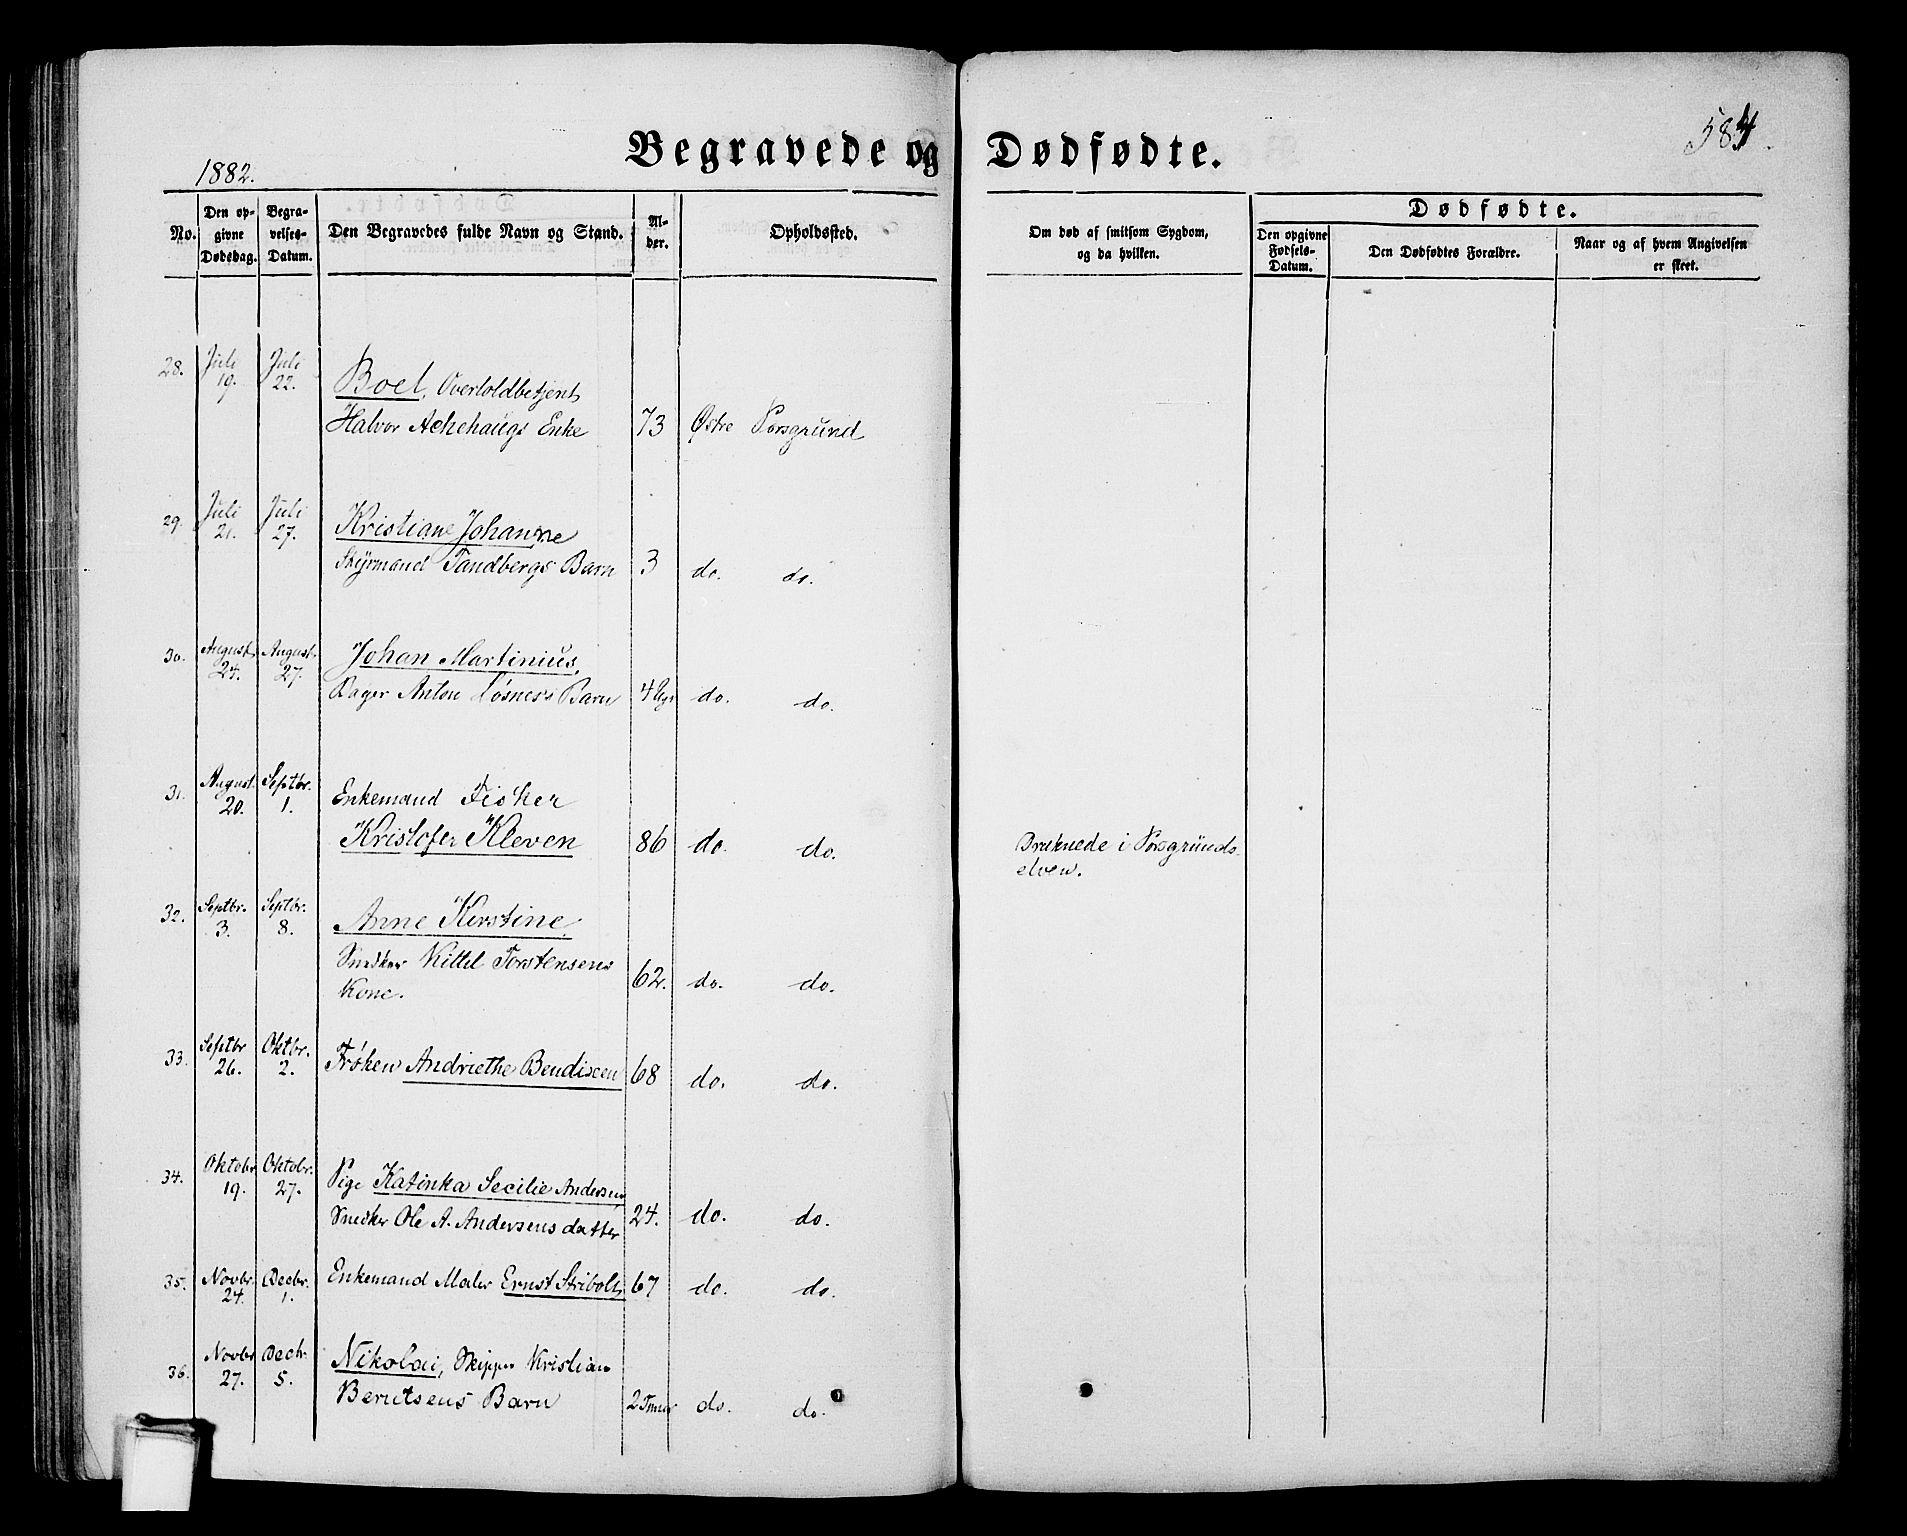 1882.
Begravede og Dødfødte.
584.
No.
Den opgivne Dødsdag.
Begravelses-Datum.
Den Begravedes fulde Navn og Stand.
Alder.
Opholdssted.
Om død af smitsom Sygdom, og da hvilken.
Dødfødte.
Den opgivne Fødsels-Datum.
Den Dødfødtes Forældre.
Naar og af hvem Angivelsen er skeet.
28. Juli 19. Juli 22. Boel, Overtoldbetjent
Halvor Achehaugs Enke 73 Østre Porsgrund
29. Juli 21. Juli 27. Kristiane Johanne
Styrmand Tandbergs Barn 3 do. do.
30. August 24. August 27. Johan Martinius,
Bager Anton Barn 4 do. do.
31. August 20. Septbr. 1. Enkemand Fisker
Kristofer Kleven 86 do. do. Druknede i Porsgrunds-
elven.
32. Septbr. 3. Septbr. 8. Anne Kirstine
Snedker Kittil Torstensens 62. do. do.
Kone.
33. Septbr 26. Oktbr. 2. Frøken Andriethe Bendixen 68 do. do.
34. Oktobr 19. Oktobr. 27. Pige Katinka Secilie Andersen,
Snedker Ole A. Andersens datter 24. do. do.
35. Novbr. 24. Decbr. 1. Enkemand Maler Ernst Stribolt 67 do. do.
36. Novbr 27. Decbr. 5. Nikolai, Skipper Kristian
Berntsens Barn 2 Timer do. do.